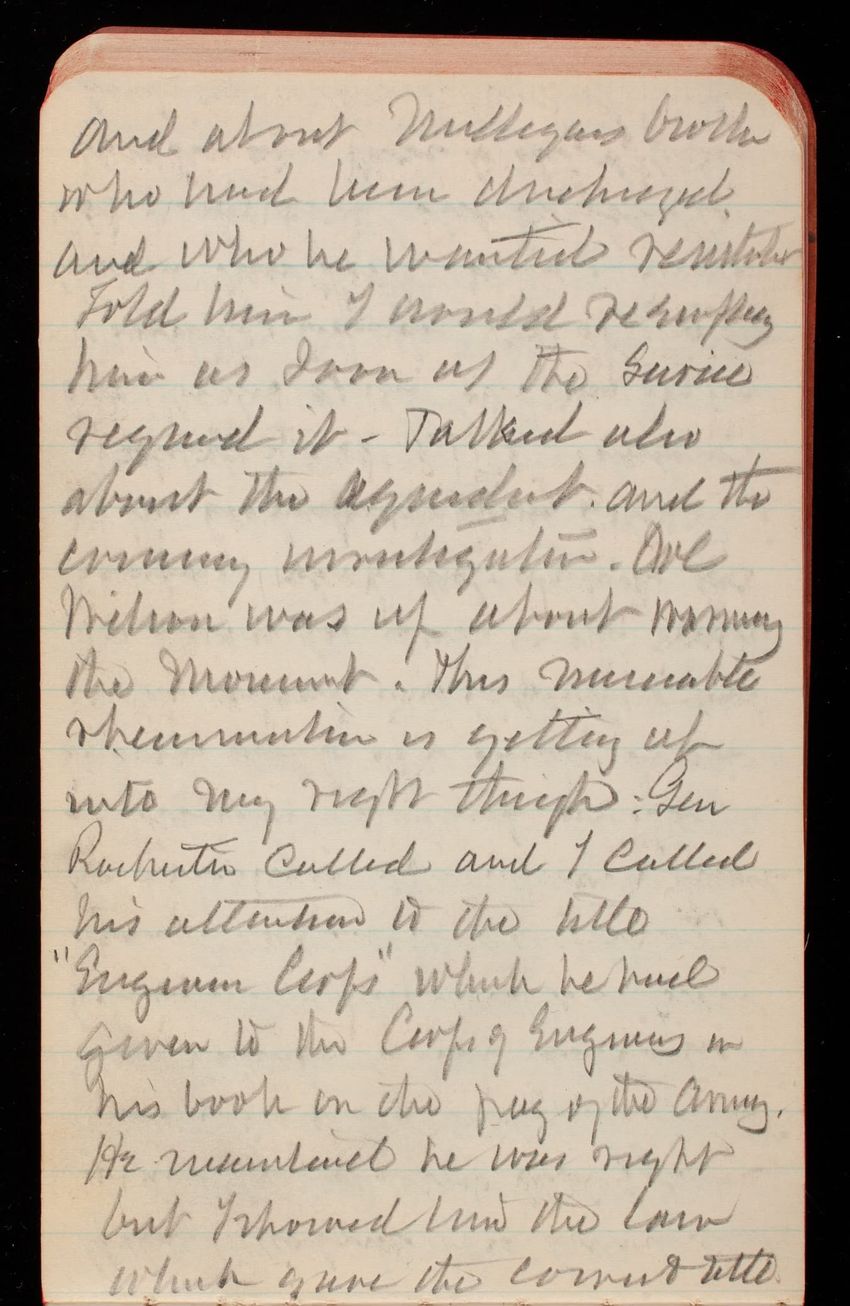 and about Milligans brother
who had been discharged
and who he wanted reinstated
Told him I would reemploy
him as soon as the service
required it - Talked also
about the aqueduct. and the
coming investigation. Col
Wilson was up about
the Monument. This miserable
rheumatism is getting up
into my right thigh. Gen
Rochester called and I called
his attention to the title
"Engineer Corps" which he had
given to the Corps of Engineers in
his book on the pay of the Army.
He maintained he was right
but I showed him the law
which gave the correct title